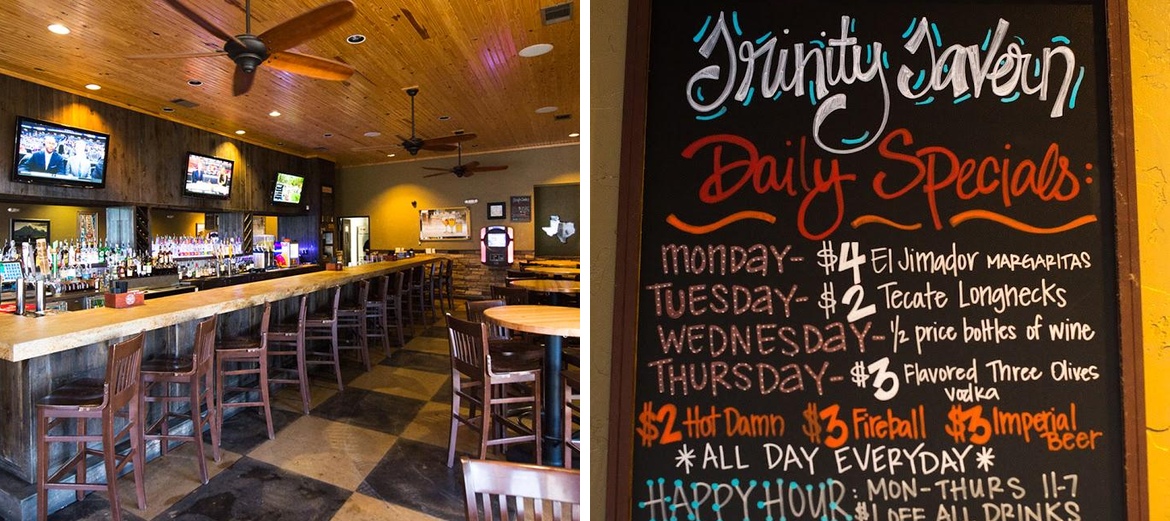 Trinity Tavern
Daily Specials:
MONDAY- $4 El Jimador MARGARITAS
TUESDAY- $2 Tecate Longnecks
WEDNESDAY- 1/2 price bottles of wine
THURSDAY- $3 Flavored Three Olives
vodka
$2 Hot Damn $3 Fireball $3 Imperial
Beer
*ALL DAY EVERYDAY*
HAPPY HOUR: MON-THURS 11-7
$1 OFF ALL DRINKS